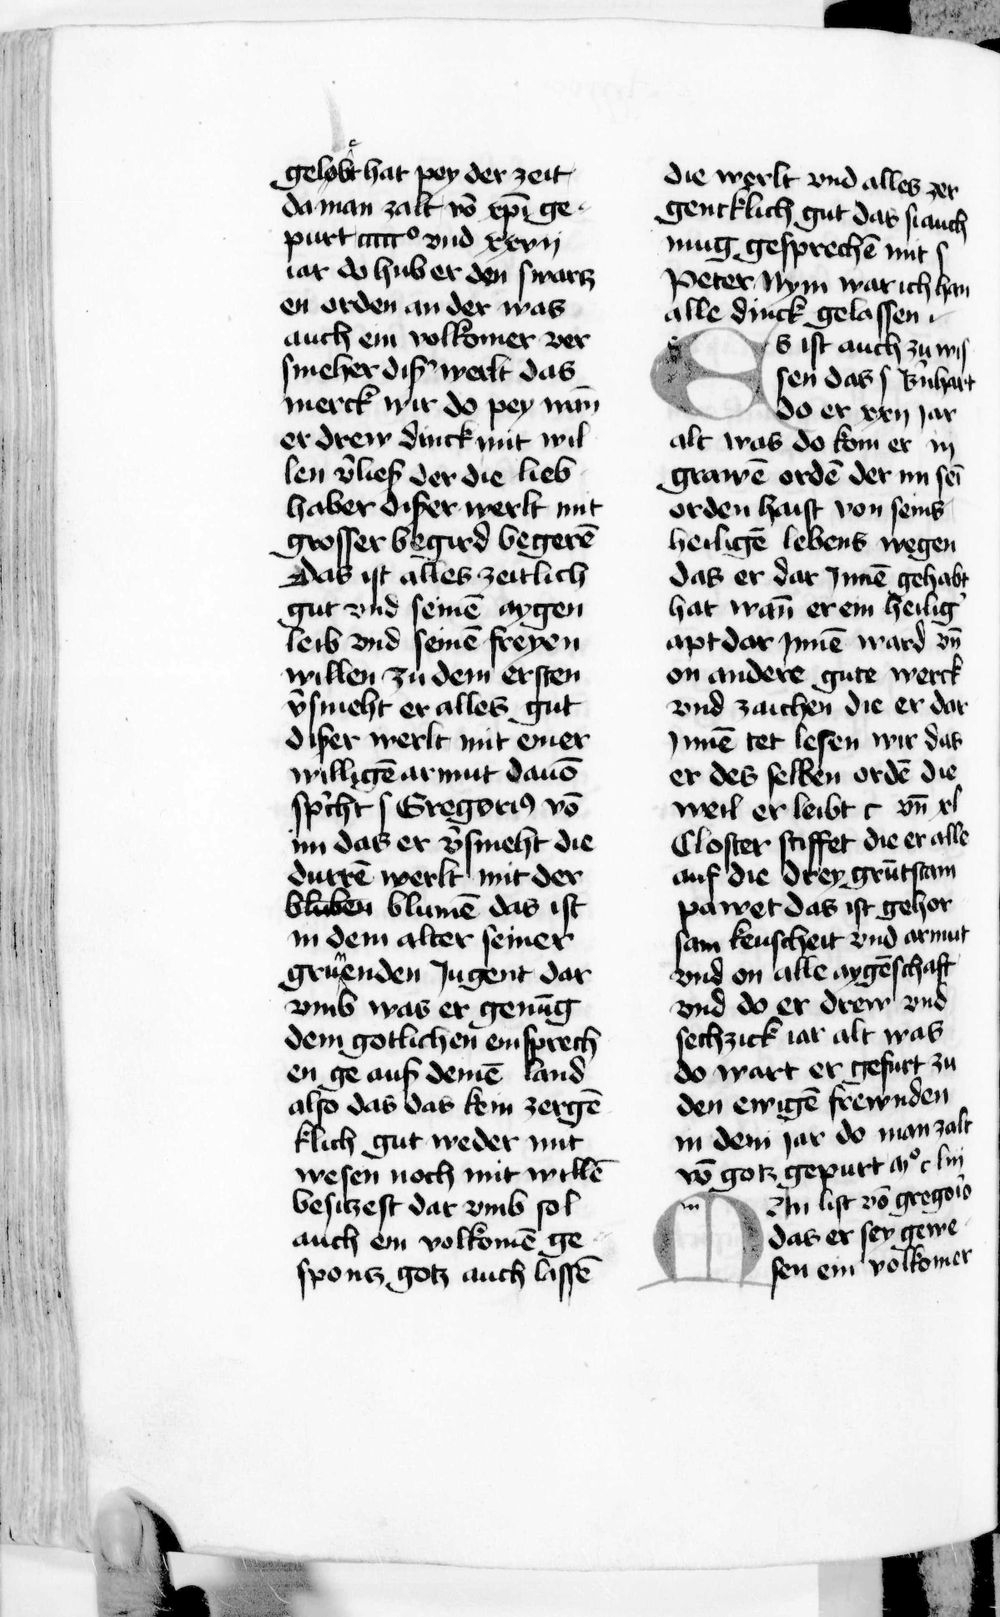 gelobt hat pey der zeit
da man zalt vō xp̄i ge
purt ccccc° vnd xxvij
iar do hub er den swartz
en orden an der was
auch ein volkomer ver
smeher diser werlt das
merck wir do pey wan̄
er drew dinck mit wil
len v̄lies der die lieb
haber diser werlt mit
grosser begird begerē
Das ist alles zeitlich
gut vnd seinē aygen
leib vnd seinē freyen
willen zu dem ersten
v̄smeht er alles gut
diser werlt mit einer
willigē armut dauō
sp̄cht s Gregorius vō
im das er v̄smeht die
durrē werlt mit der
bluben blumē das ist
in dem alter seiner
gruenden Jugent dar
vmb was er genūg
dem gotlichen einsprech
en ge aus deinē land
also das das kein zergē
klich gut weder mit
wesen noch mit willē
besitzest dar vmb sol
auch ein volkomē ge
spontz gotz auch lassē
die werlt vnd alles zer
gencklich gut das si auch
mug gesprechē mit s
Peter Nym war ich han
alle dinck gelassen
Es ist auch zu wis
sen das s b̄nhart
do er xxij jar
alt was do kom er in
grawē ordē der im sei
orden haist von seins
heiligē lebens wegen
das er dar Jnnē gehabt
hat wan̄ er ein heilig'
apt dar Jnnē ward vn̄
on andere gute werck
vnd zaichen die er dar
Jnnē tet lesen wir das
er des selben ordē die
weil er leibt c vn̄ xl
Closter stiffet die er alle
auf die drey grūtstam
pawet das ist gehor
sam keuscheit vnd armut
vnd on alle aygēschaft
vnd do er drew vnd
sechzick iar alt was
do wart er gefurt zu
den ewigē frewnden
in dem jar do man zalt
vō gotz gepurt m° c liij
Man list vō gregorio
das er sey gewe
sen ein volkomer